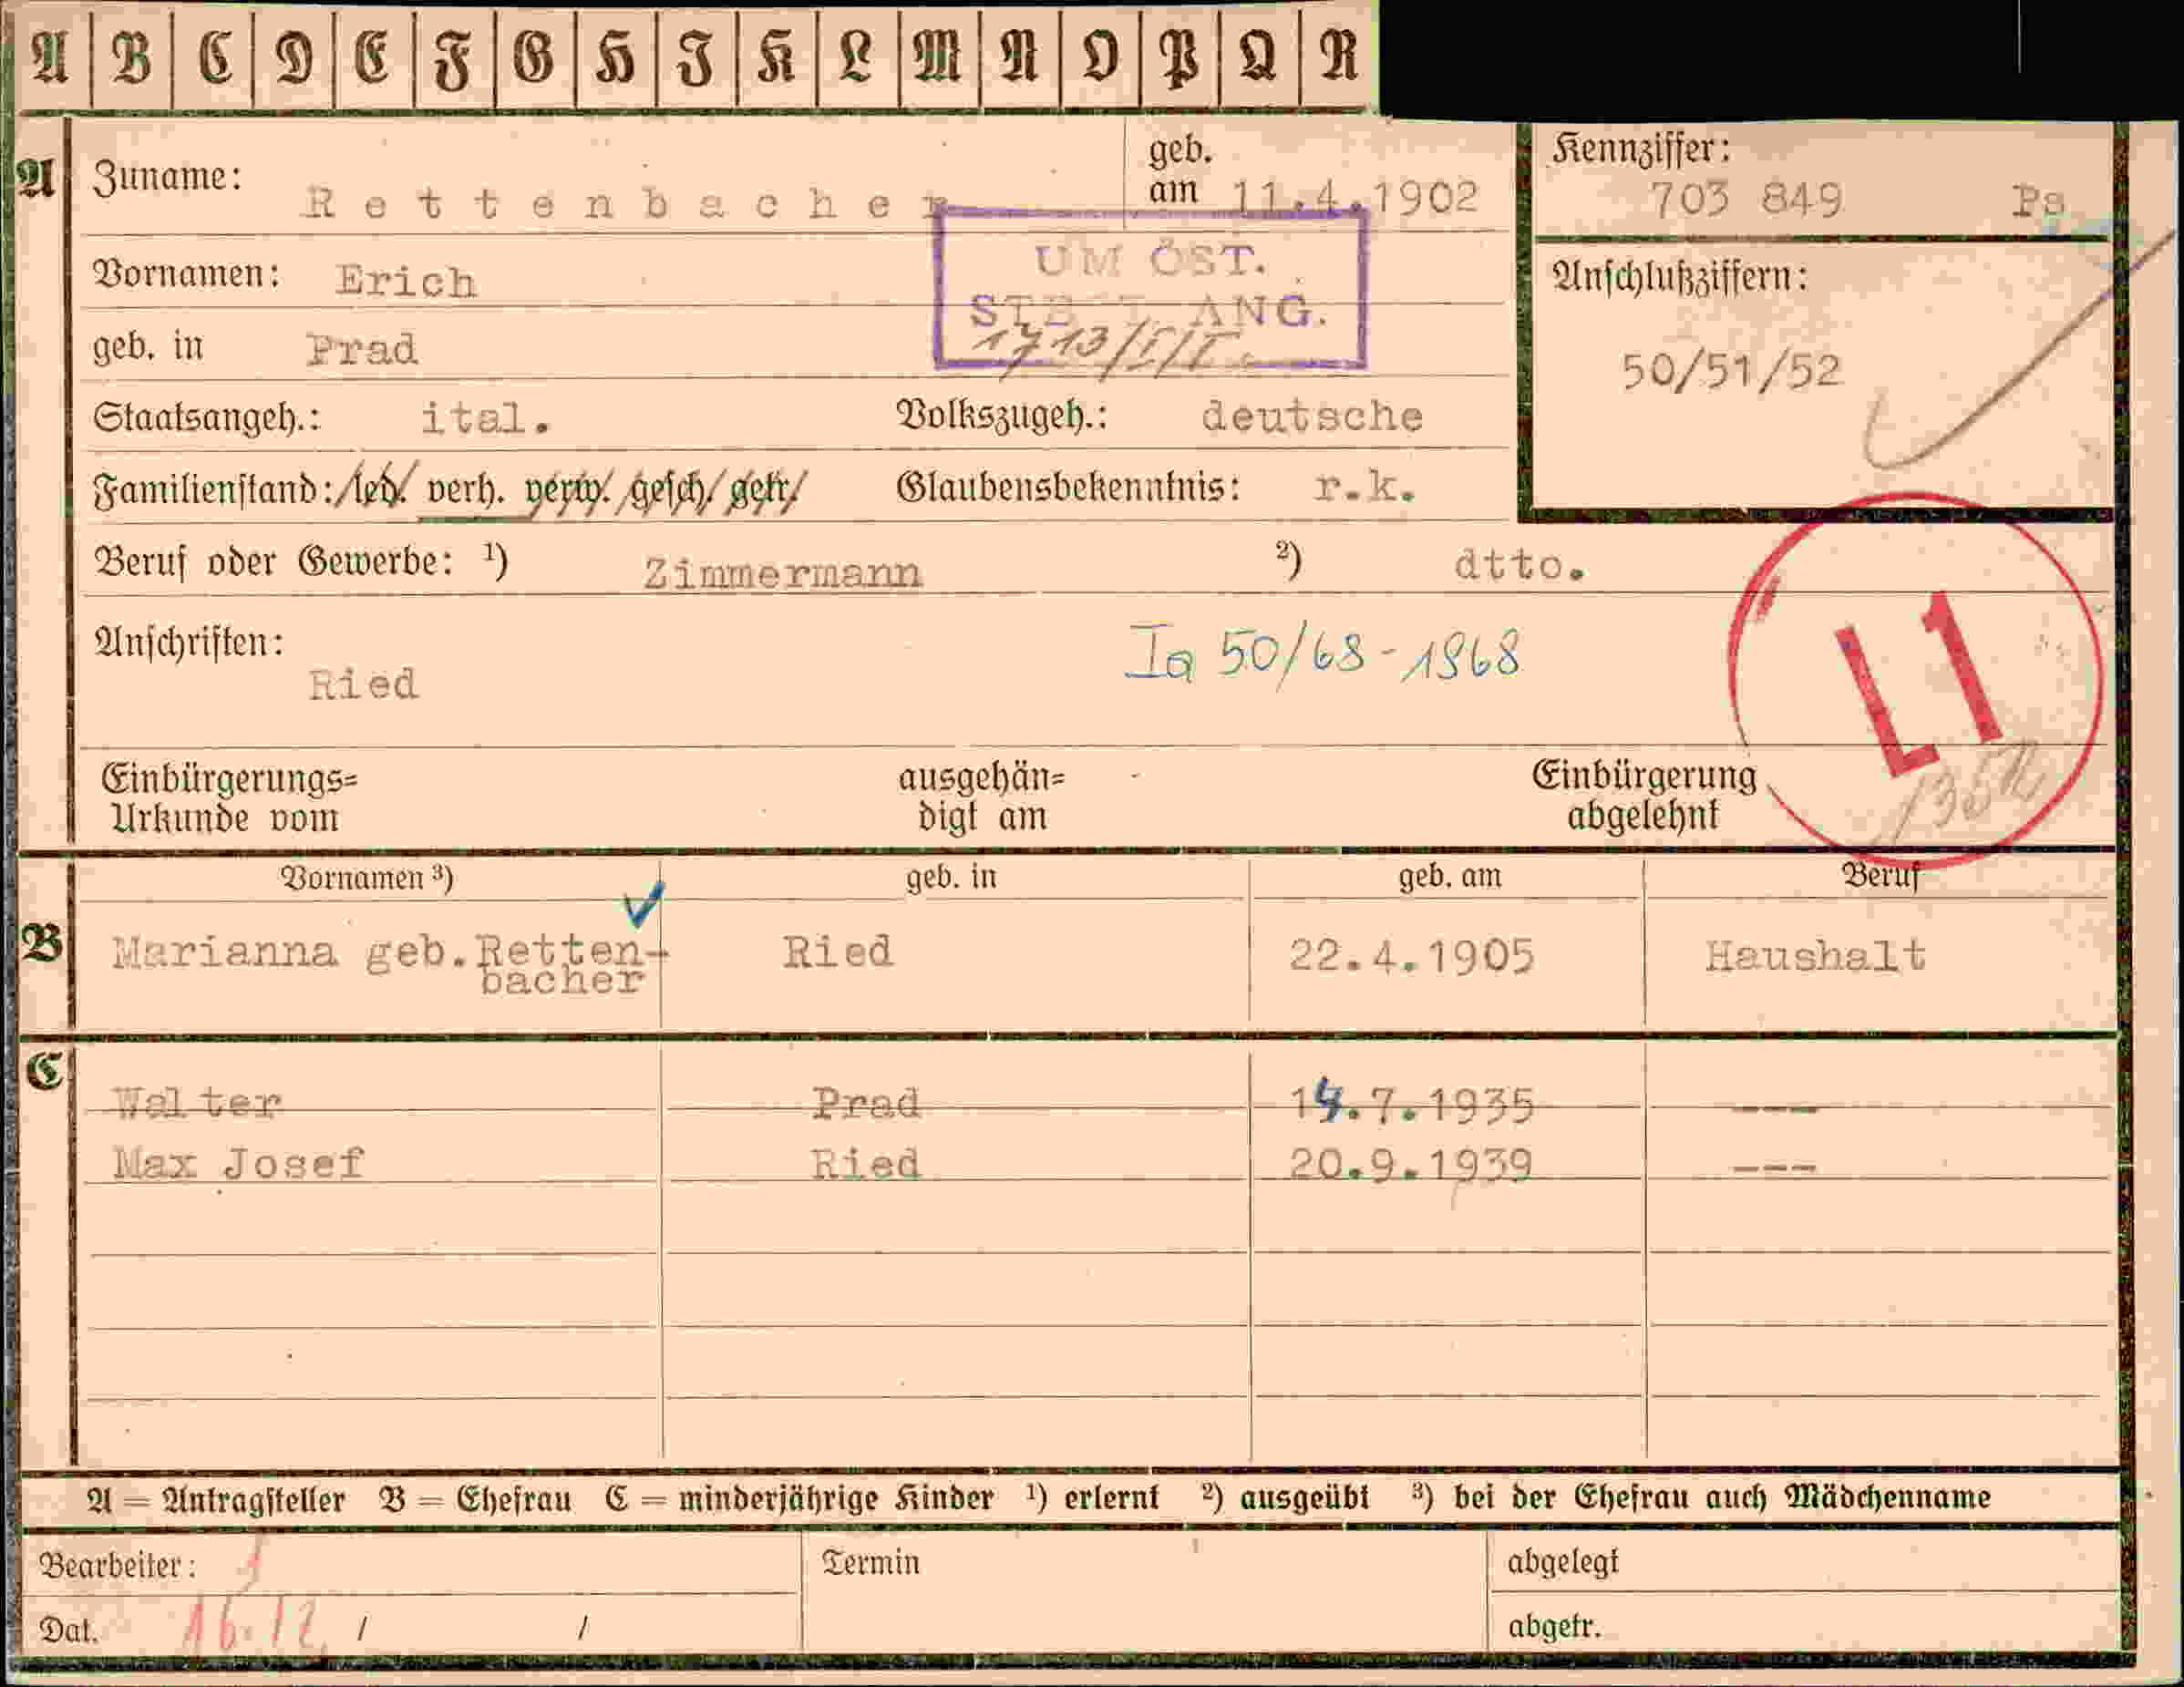 A B C D E F G H J K L M N O P Q R
A Zuname: Rettenbacher geb. am 11.4.1902
Kennziffer: 703 849 Ps
UM ÖST.
ST ANG.
1713/I/I
Vornamen: Erich
Anschlußziffern:
geb. in Prad
50/51/52
Staatsangeh.: ital. Volkszugeh.: deutsche
Familienstand: led. verh. verw. gesch. getr. Glaubensbekenntnis: r.k.
Beruf oder Gewerbe: ¹) Zimmermann ²) dtto.
L1
Anschriften:
Ia 50/68-1968
Ried
Einbürgerungs= ausgehän= Einbürgerung
Urkunde vom digt am abgelehnt
Vornamen ³) geb. in geb. am Beruf
B Marianna geb. Retten- Ried 22.4.1905 Haushalt
bacher
C
Walter Prad 14.7.1935 ---
Max Josef Ried 20.9.1939 ---
A = Antragsteller B = Ehefrau C = minderjährige Kinder ¹) erlernt ²) ausgeübt ³) bei der Ehefrau auch Mädchenname
Bearbeiter: Termin abgelegt
Dat. 16.12. / / abgetr.